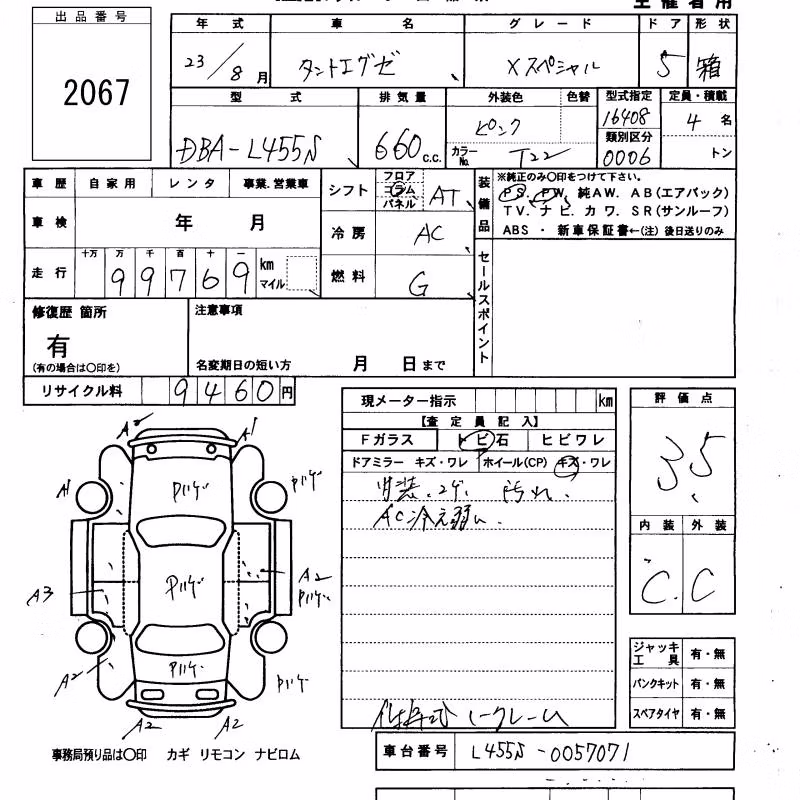 主催者用
出品番号
2067
年式 車名 グレード ドア 形状
23/8月 タントエグゼ Xスペシャル 5 箱
型式 排気量 外装色 色替 型式指定 定員・積載
DBA-L455S 660c.c. ピンク カラーNo. T22 16408 4名
類別区分
0006 トン
車歴 自家用 レンタ 事業、営業車
シフト フロア コラム パネル AT
装備品
※純正のみ〇印をつけて下さい。
PS. PW. 純AW. AB(エアバック)
TV. ナビ. カワ. SR(サンルーフ)
ABS ・ 新車保証書←(注) 後日送りのみ
車検 年 月
冷房 AC
走行 十万 万 千 百 十 一
99769 km マイル
燃料 G
セールスポイント
修復歴 箇所
有
(有の場合は〇印を)
注意事項
名変期日の短い方 月 日まで
リサイクル料 9460円
現メーター指示 km
【査定員記入】
Fガラス トビ石 ヒビワレ
ドアミラー キズ・ワレ ホイール(CP) キズ・ワレ
内装.コゲ. 汚れ.
AC冷え弱い.
評価点
3.5
内装 外装
C. C
A2 A1
A1 Pハゲ Pハゲ
A3 Pハゲ A2
Pハゲ
A2 Pハゲ Pハゲ
A2 A2
ジャッキ工具 有・無
パンクキット 有・無
スペアタイヤ 有・無
ノークレーム
事務局預り品は〇印 カギ リモコン ナビロム
車台番号 L455S-0057071